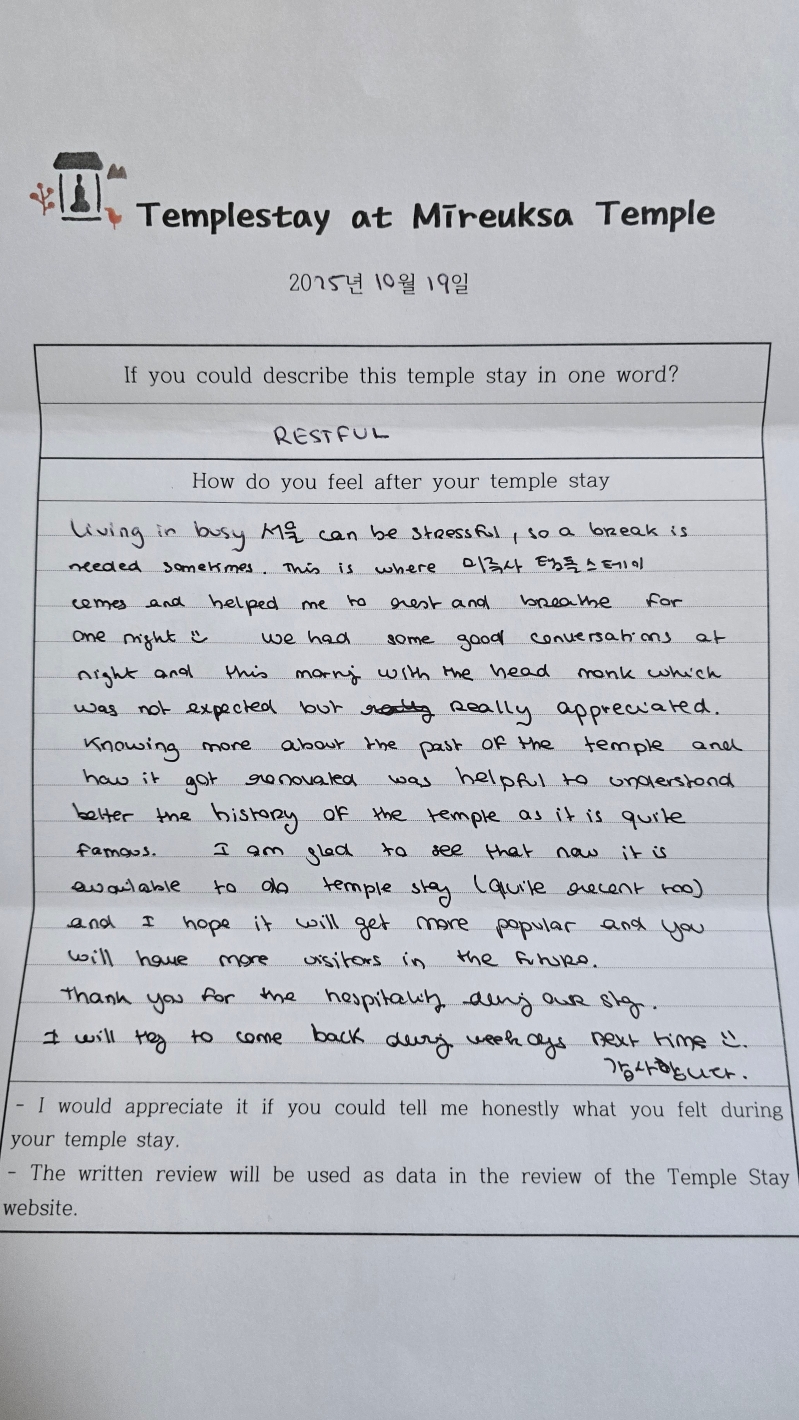 Templestay at Mīreuksa Temple
2025년 10월 19일
If you could describe this temple stay in one word?
RESTFUL
How do you feel after your temple stay
Living in busy 서울 can be stressful, so a break is
needed sometimes. This is where 미륵사 템플스테이
comes and helped me to rest and breathe for
one night ☺ we had some good conversations at
night and this morning with the head monk which
was not expected but really appreciated.
Knowing more about the past of the temple and
how it got renovated was helpful to understand
better the history of the temple as it is quite
famous. I am glad to see that now it is
available to do temple stay (quite recent too)
and I hope it will get more popular and you
will have more visitors in the future.
Thank you for the hospitality during our stay.
I will try to come back during weekdays next time ☺.
감사합니다.
- I would appreciate it if you could tell me honestly what you felt during
your temple stay.
- The written review will be used as data in the review of the Temple Stay
website.